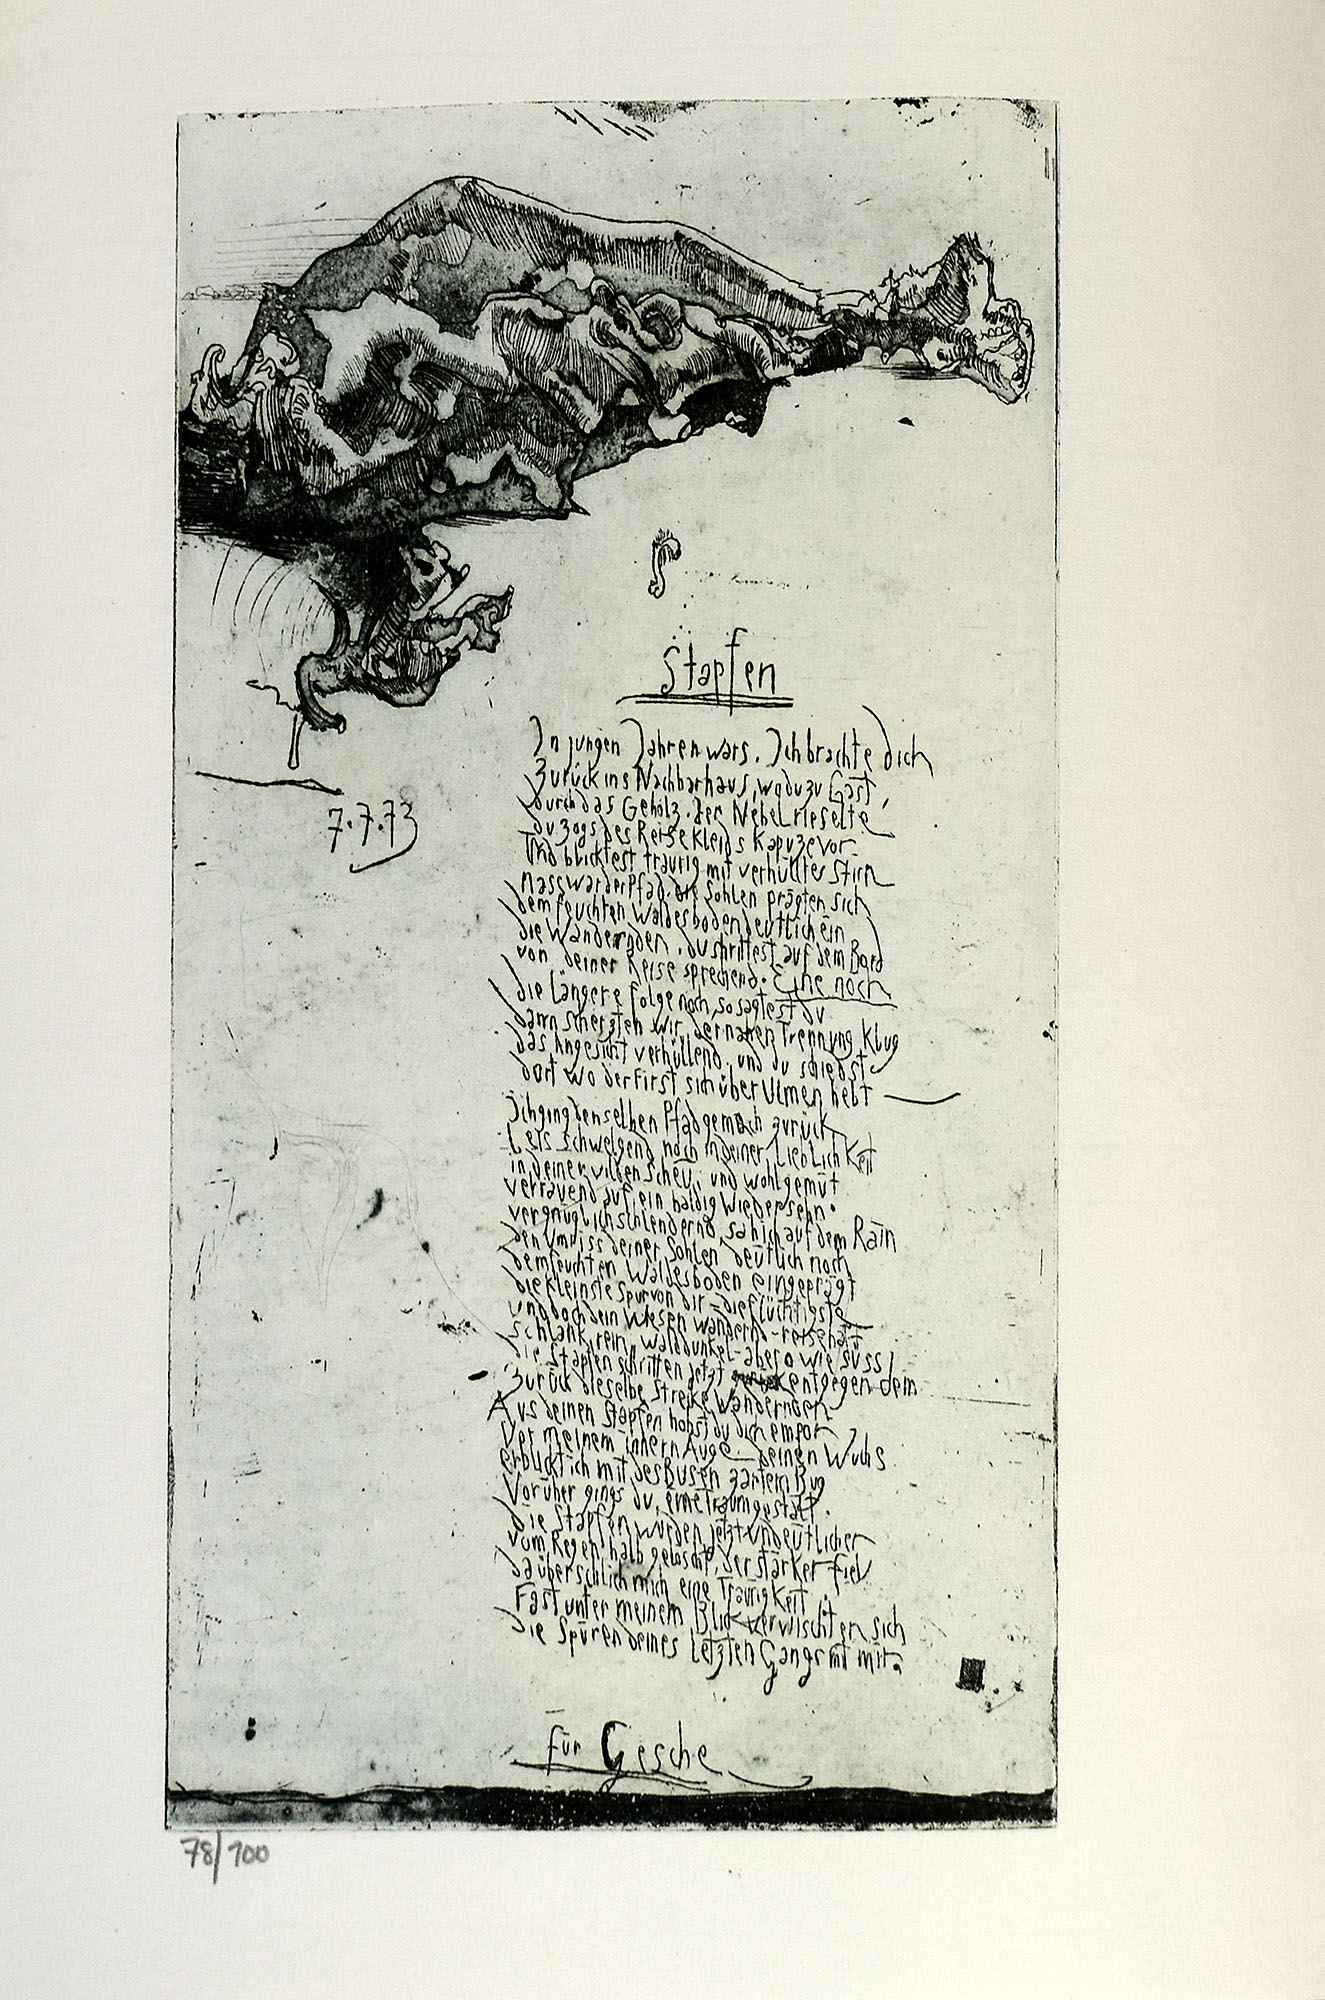 Stapfen
7.7.73
In jungen Jahren wars. Ich brachte dich
Zurück ins Nachbarhaus, wo du zu Gast,
durch das Gehölz. Der Nebel rieselte
du zogs des Reisekleids Kapuze vor
Und blicktest traurig mit verhüllter Stirn
Nass war der Pfad. die Sohlen prägten sich
dem feuchten Waldesboden deutlich ein
die Wandernden. du shrittest auf dem Bord
von deiner Reise sprechend. Eine noch
die Längere folge noch, so sagtest du
dann scherzten wir, der nahen Trennung Klug
das Angesicht verhüllend, und du schiedst
dort wo der First sich über Ulmen hebt
Ich ging denselben Pfad gemach zurück
Leis schwelgend noch in deiner Lieblichkeit
in deiner wilden Scheu, und wohlgemut
vertrauend auf ein baldig Wiedersehn.
vergnüglich schlendernd, sah ich auf dem Rain
den Umriss deiner Sohlen deutlich noch
dem feuchten Waldesboden eingeprägt
die kleinste Spur von dir - die flüchtigste
und doch dein Wesen wandernd - reisehaft
Schlank, rein, walddunkel - aber o wie süss!
die Stapfen schritten jetzt entgegen dem
Zurück dieselbe Streke Wandernden
Aus deinen Stapfen hobst du dich empor
Vor meinem innern Auge. Deinen Wuchs
erblickt ich mit des Busen zartem Bug
Vorüber gings du, eine Traumgestalt.
die Stapfen wurden jetzt undeutlicher
vom Regen halb gelöscht, der stärker fiel
da überschlich mich eine Traurigkeit.
Fast unter meinem Blick verwischten sich
die Spuren deines letzten Gangs mit mir.
für Gesche
78/100